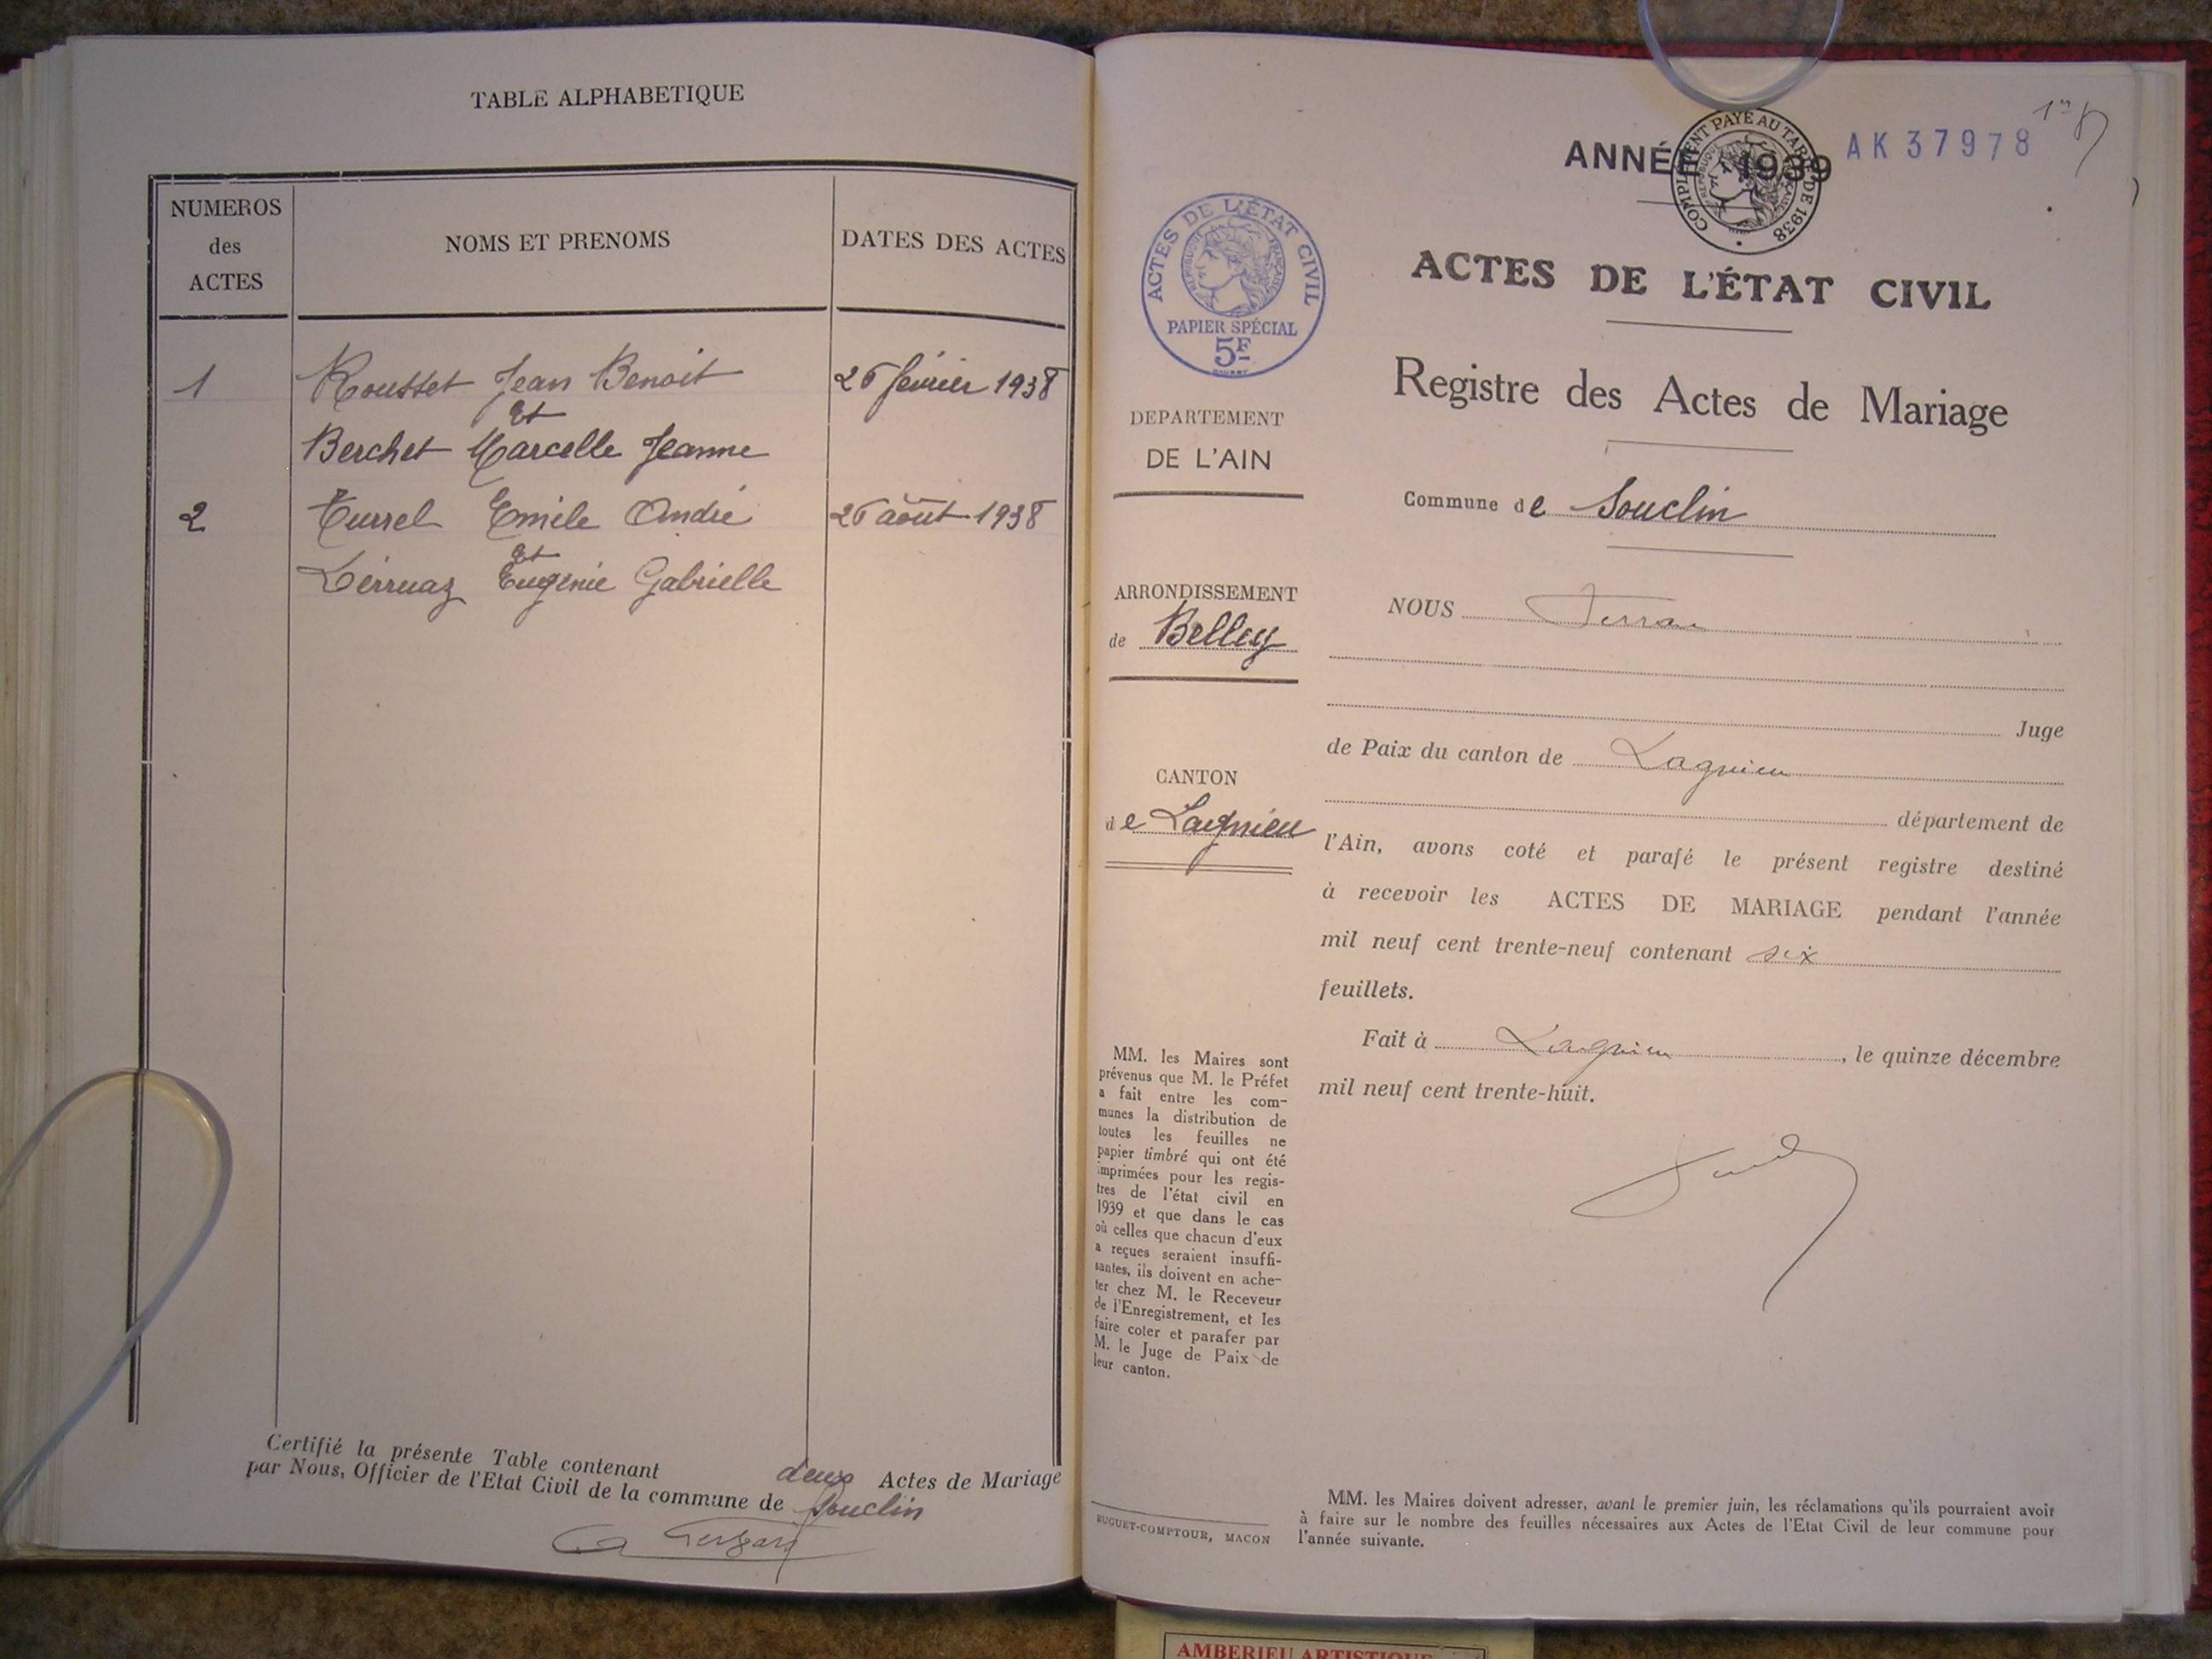 TABLE ALPHABETIQUE
NUMEROS des ACTES
NOMS ET PRENOMS
DATES DES ACTES
1 Rousset Jean Benoit 26 février 1938
et
Berchet Marcelle Jeanne
2 Turrel Emile André 26 août 1938
et
Derruaz Eugénie Gabrielle
Certifié la présente Table contenant deux Actes de Mariage
par Nous, Officier de l'Etat Civil de la commune de Souclin
ANNÉE 1939
COMPLÉMENT PAYÉ AU TARIF DE 1938
AK37978
ACTES DE L'ÉTAT CIVIL
RÉPUBLIQUE FRANÇAISE
PAPIER SPÉCIAL
5F
DEPARTEMENT
DE L'AIN
ARRONDISSEMENT
de Belley
CANTON
de Lagnieu
MM. les Maires sont
prévenus que M. le Préfet
a fait entre les com-
munes la distribution de
toutes les feuilles ne
papier timbré qui ont été
imprimées pour les regis-
tres de l'état civil en
1939 et que dans le cas
où celles que chacun d'eux
a reçues seraient insuffi-
santes, ils doivent en ache-
ter chez M. le Receveur
de l'Enregistrement, et les
faire coter et parafer par
M. le Juge de Paix de
leur canton.
BUGUET-COMPTOUR, MACON
ACTES DE L'ÉTAT CIVIL
Registre des Actes de Mariage
Commune de Souclin
NOUS
Juge
de Paix du canton de Lagnieu
département de
l'Ain, avons coté et parafé le présent registre destiné
à recevoir les ACTES DE MARIAGE pendant l'année
mil neuf cent trente-neuf contenant six
feuillets.
Fait à Lagnieu, le quinze décembre
mil neuf cent trente-huit.
MM. les Maires doivent adresser, avant le premier juin, les réclamations qu'ils pourraient avoir
à faire sur le nombre des feuilles nécessaires aux Actes de l'Etat Civil de leur commune pour
l'année suivante.
AMBERIEU ARTISTIQUE